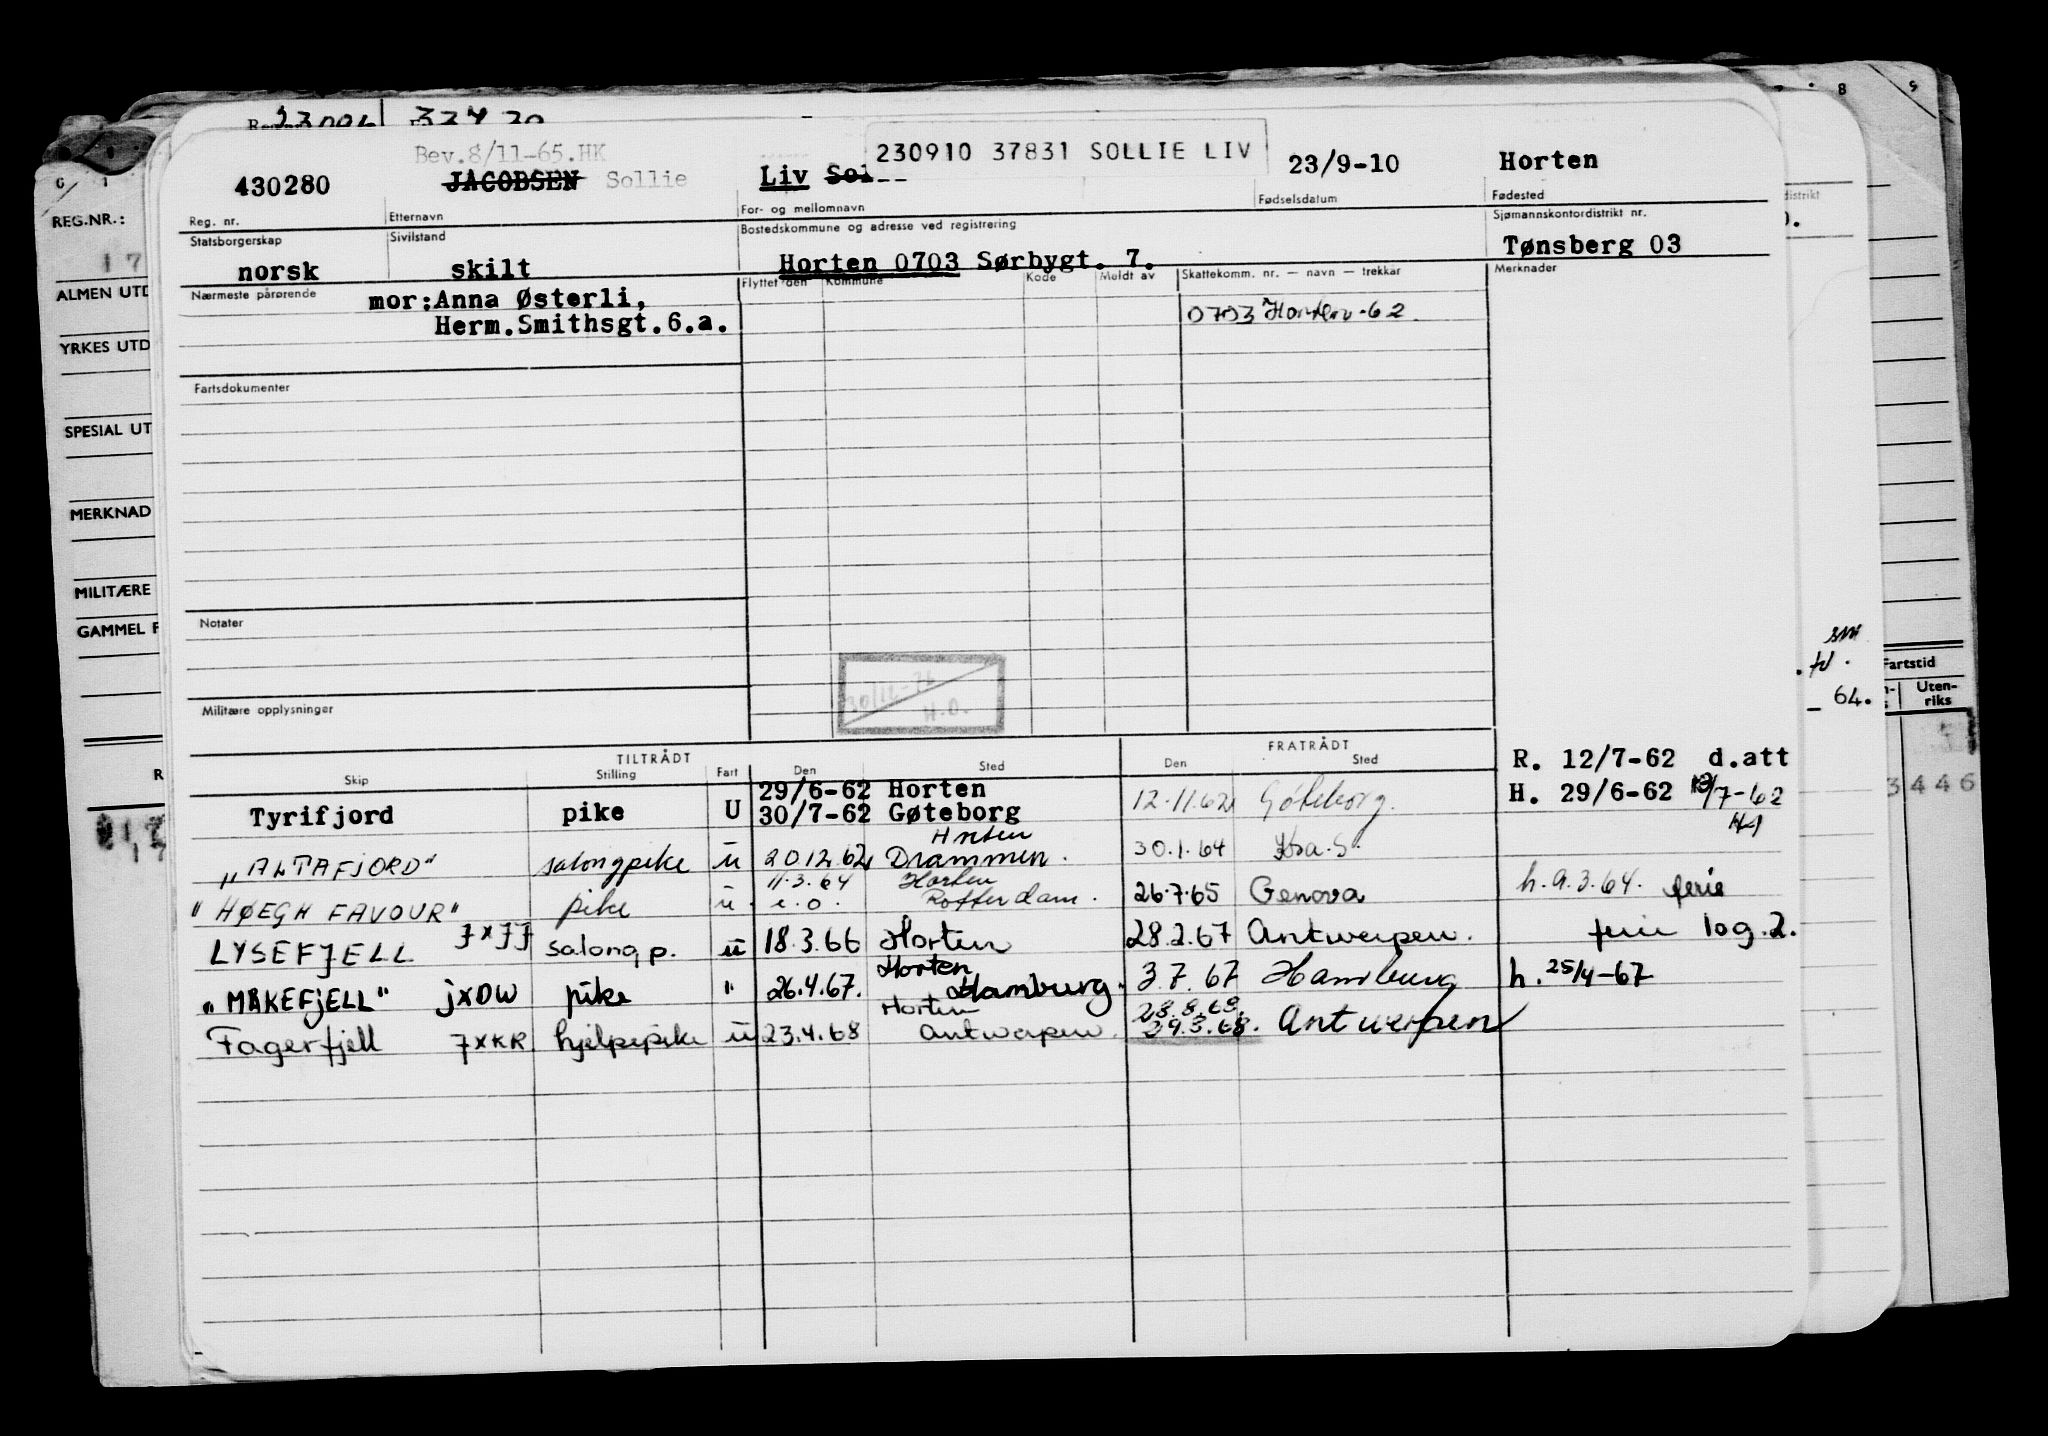 Bev.8/11-65.HK
230910 37831 SOLLIE LIV
430280 JACOBSEN Sollie Liv Sol 23/9-10 Horten
Reg. nr. Etternavn For- og mellomnavn Fødselsdatum Fødested
Statsborgerskap Sivilstand Bostedskommune og adresse ved registrering Sjømannskontordistrikt nr.
norsk skilt Horten 0703 Sørbygt. 7. Tønsberg 03
Nærmeste pårørende Flyttet den Kommune Kode Meldt av Skattekomm. nr. — navn — trekkår Merknader
mor:Anna Østerli,
Herm.Smithsgt.6.a.
0703 Horten-62
Fartsdokumenter
Notater
30/12-76
H.O.
Militære opplysninger
TILTRÅDT FRATRÅDT
Skip Stilling Fart Den Sted Den Sted
R. 12/7-62 d.att
29/6-62 Horten
Tyrifjord pike U 30/7-62 Gøteborg 12.11.62 Göteborg. H. 29/6-62 13/7-62
Horten
"ALTAFJORD" salongpike u 20.12.62 Drammen. 30.1.64 Kra.S.
11.3.64 Horten
"HØEGH FAVOUR" pike u. i.o. Rotterdam. 26.7.65 Genova h.9.3.64. ferie
LYSEFJELL JXJJ salong p. u 18.3.66 Horten 28.2.67 Antwerpen. ferie log.2.
Horten
"MÅKEFJELL" jXDW pike " 26.4.67. Hamburg. 3.7.67 Hamburg h. 25/4-67
Horten 28.8.68.
Fagerfjell JXKR hjelpepike u 23.4.68 Antwerpen. 29.8.68. Antwerpen
REG.NR.:
ALMEN UTD
YRKES UTD
SPESIAL UT
MERKNAD
MILITÆRE
GAMMEL F
distrikt
64.
Fartstid
Uten-
riks
3446